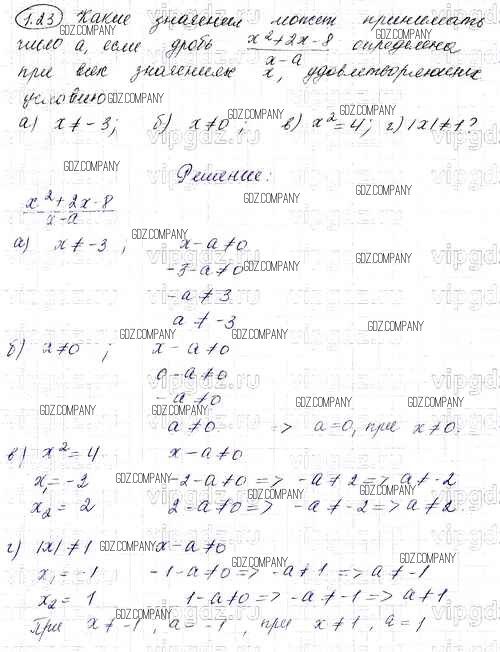 1.23 Какие значения может принимать
число а, если дробь x²+2x-8 / x-a определена
при всех значениях x, удовлетворяющих
условию
а) x ≠ -3; б) x ≠ 0; в) x² = 4; г) |x| ≠ 1?
Решение:
x²+2x-8 / x-a
а) x ≠ -3, x-a ≠ 0
-3-a ≠ 0
-a ≠ 3
a ≠ -3
б) x ≠ 0; x-a ≠ 0
0-a ≠ 0
-a ≠ 0
a ≠ 0 => a=0, при x ≠ 0.
в) x² = 4 x-a ≠ 0
x₁ = -2 -2-a ≠ 0 => -a ≠ 2 => a ≠ -2
x₂ = 2 2-a ≠ 0 => -a ≠ -2 => a ≠ 2
г) |x| ≠ 1 x-a ≠ 0
x₁ = -1 -1-a ≠ 0 => -a ≠ 1 => a ≠ -1
x₂ = 1 1-a ≠ 0 => -a ≠ -1 => a ≠ 1
При x ≠ -1, a = -1, при x ≠ 1, a = 1
GDZ.COMPANY
vipgdz.ru